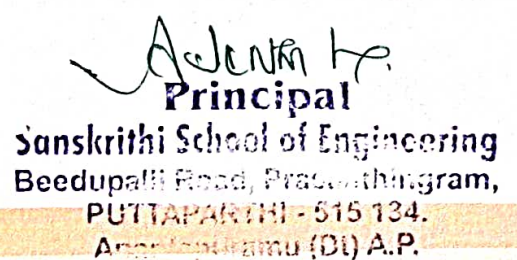 Principal
Sanskrithi School of Engineering
Beedupalli Road, Prasanthingram,
PUTTAPARTHI - 515 134.
(Dt) A.P.